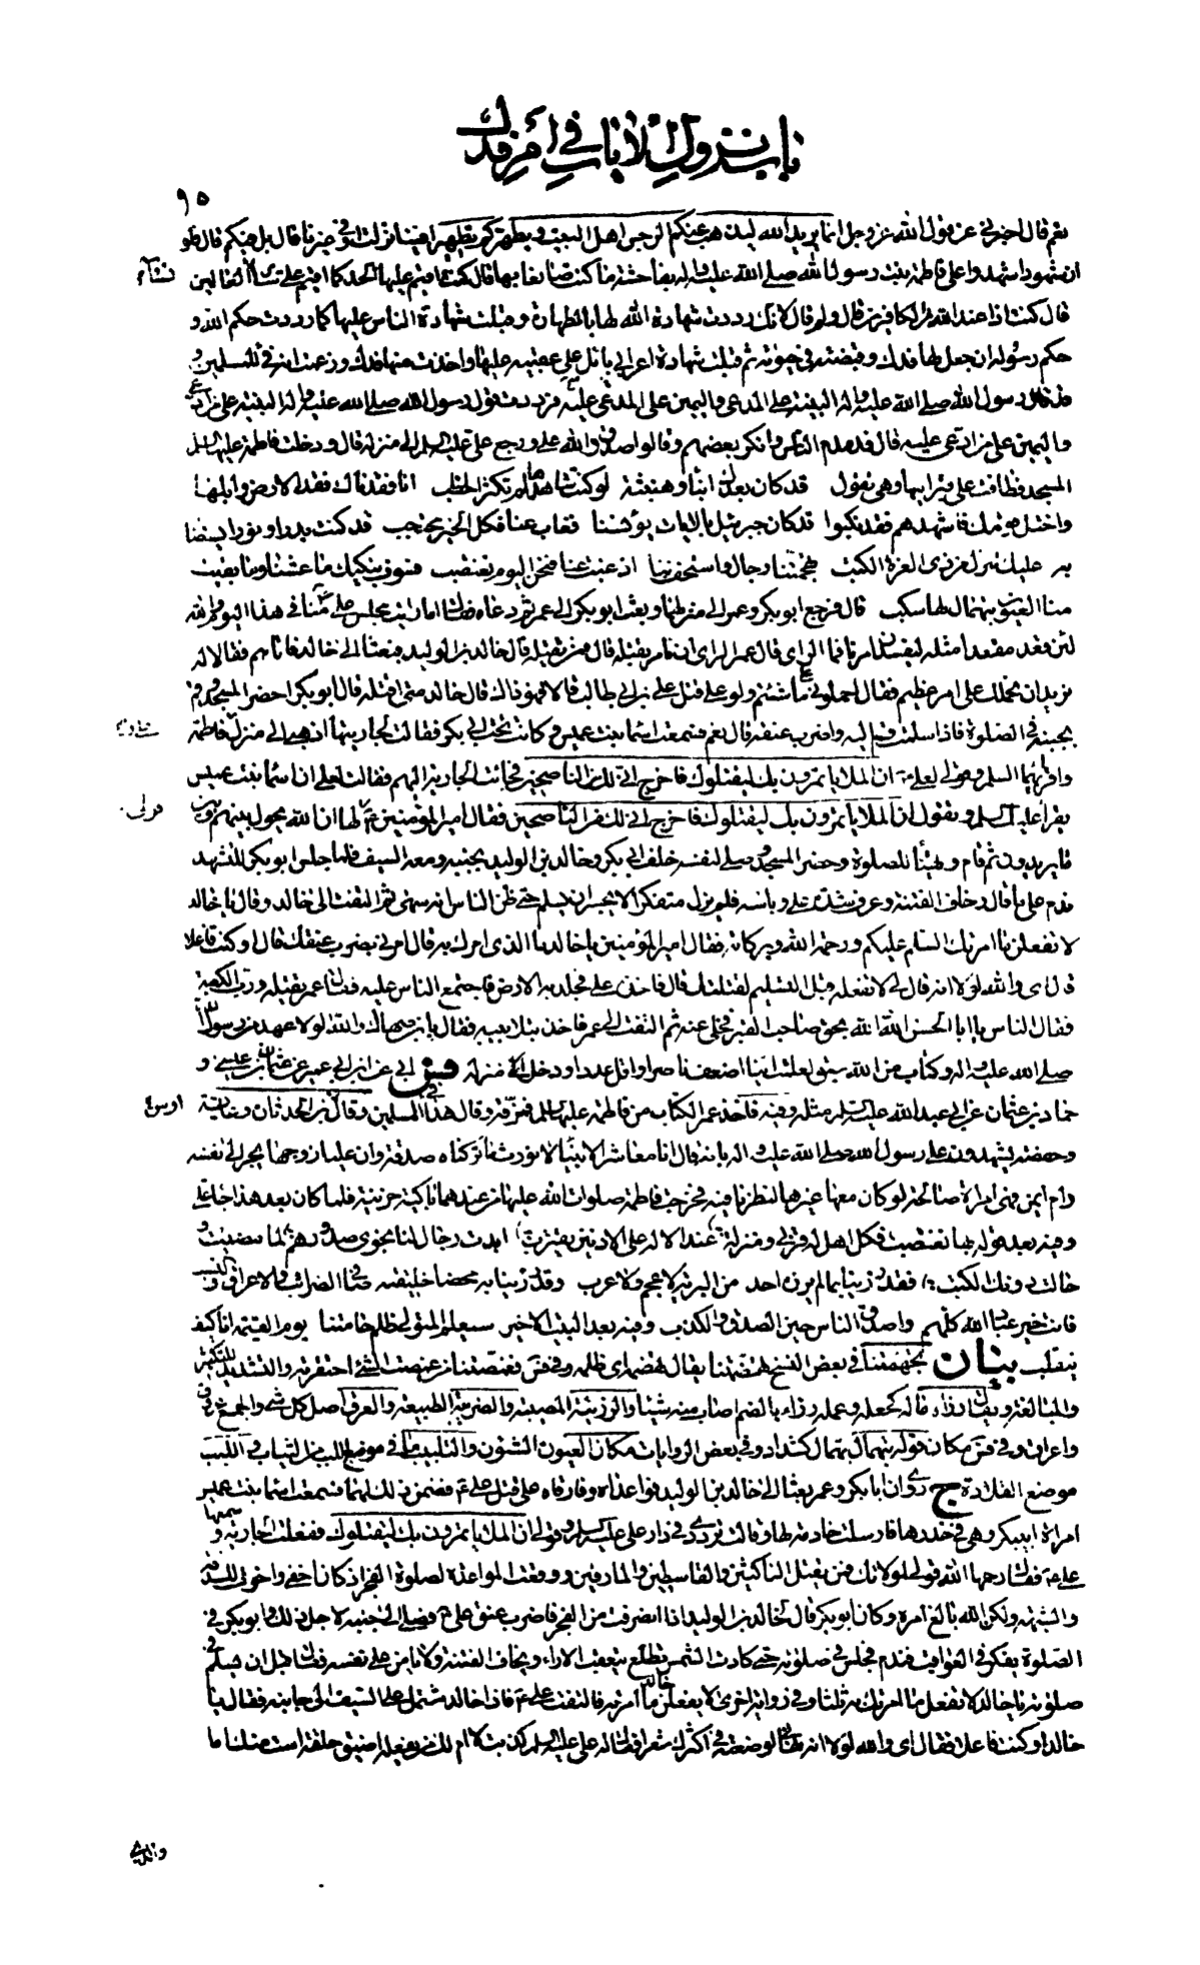 باب نزول الآيات في أمر فدك
٩٥
نعم قال اخبرني عن قول الله عز وجل انما يريد الله ليذهب عنكم الرجس اهل البيت ويطهركم تطهيرا فينا نزلت او في غيرنا قال بل فيكم قال فلو
ان شهودا شهدوا على فاطمة بنت رسول الله صلى الله عليه واله بفاحشة ما كنت صانعا بها قال كنت اقيم عليها الحد كما اقيم على نساء العالمين
نساء
قال كنت اذا عند الله من الكافرين قال ولم قال لانك رددت شهادة الله لها بالطهارة وقبلت شهادة الناس عليها كما رددت حكم الله و
حكم رسوله ان جعل لها فدك وقبضته في حيوته ثم قبلت شهادة اعرابي بائل على عقبيه عليها واخذت منها فدك وزعمت انه فئ للمسلمين و
قد قال رسول الله صلى الله عليه واله البينة على المدعي واليمين على المدعى عليه فرددت قول رسول الله صلى الله عليه واله البينة على من ادعى
واليمين على من ادعي عليه قال فدمدم الناس وانكر بعضهم وقالوا صدق والله علي ورجع علي عليه السلم الى منزله قال ودخلت فاطمة عليها السلم
المسجد فطافت على قبر ابيها وهي تقول قد كان بعدك انباء وهنبثة لو كنت شاهدها لم تكثر الخطب انا فقدناك فقد الارض وابلها
واختل قومك فاشهدهم فقد نكبوا قد كان جبريل بالايات يؤنسنا فغاب عنا فكل الخير محتجب قد كنت بدرا ونورا يستضاء
به عليك تنزل من ذي العزة الكتب تجهمتنا رجال واستخف بنا اذ غبت عنا فنحن اليوم نغتصب فسوف نبكيك ما عشنا وما بقيت
منا العيون بتهمال لها سكب قال فرجع ابو بكر وعمر الى منزلهما وبعث ابو بكر الى عمر ثم دعاه فقال اما رايت مجلس علي منا في هذا اليوم والله
لئن قعد مقعدا مثله ليفسدن امرنا فما الراي قال عمر الراي ان نامر بقتله قال فمن يقتله قال خالد بن الوليد فبعثا الى خالد فاتاهم فقالا له
نريد ان نحملك على امر عظيم فقال احملوني على ما شئتم ولو على قتل علي بن ابي طالب قالا فهو ذاك قال خالد متى اقتله قال ابو بكر احضر المسجد وقم
بجنبه في الصلوة فاذا سلمت قم اليه واضرب عنقه قال نعم فسمعت اسماء بنت عميس وكانت تحت ابي بكر فقالت لجاريتها اذهبي الى منزل فاطمة
واقرئيهما السلم وقولي لعلي ان الملا ياتمرون بك ليقتلوك فاخرج اني لك من الناصحين فجاءت الجارية اليهم فقالت لعلي ان اسماء بنت عميس
تقرا عليك السلم وتقول ان الملا ياتمرون بك ليقتلوك فاخرج اني لك من الناصحين فقال امير المؤمنين قولي لها ان الله يحول بينهم وبين
قولي
ما يريدون ثم قام وتهيأ للصلوة وحضر المسجد وصلى لنفسه خلف ابي بكر وخالد بن الوليد بجنبه ومعه السيف فلما جلس ابو بكر للتشهد
ندم على ما قال وخاف الفتنة وعرف شدة علي وباسه فلم يزل متفكرا لا يجسر ان يسلم حتى ظن الناس انه سهى ثم التفت الى خالد وقال يا خالد
لا تفعلن ما امرتك السلم عليكم ورحمة الله وبركاته فقال امير المؤمنين يا خالد ما الذي امرك به قال امرني بضرب عنقك قال اوكنت فاعلا
قال اي والله لولا انه قال لي لا تفعله قبل التسليم لقتلتك قال فاخذه علي فجلد به الارض فاجتمع الناس عليه فقال عمر يقتله ورب الكعبة
فقال الناس يا ابا الحسن الله الله بحق صاحب القبر فخلى عنه ثم التفت الى عمر فاخذ بتلابيبه فقال يا بن صهاك والله لولا عهد من رسول الله
صلى الله عليه واله وكتاب من الله سبق لعلمت اينا اضعف ناصرا واقل عددا ودخل الى منزله فس ابي عن ابن ابي عمير عن عثمان بن عيسى و
حماد بن عثمان عن ابي عبد الله عليه السلم مثله وفيه فاخذ عمر الكتاب من فاطمة عليها السلم فمزقه وقال هذا فئ المسلمين وقال اوس بن الحدثان وعايشة
اوس
وحفصة يشهدون على رسول الله صلى الله عليه واله بانه قال انا معاشر الانبياء لا نورث ما تركناه صدقة وان عليا زوجها يجر الى نفسه
وام ايمن فهي امراة صالحة لو كان معها غيرها لنظرنا فيه فخرجت فاطمة صلوات الله عليها من عندهما باكية حزينة فلما كان بعد هذا جاء علي
وفيه بعد قوله فينا نغتصب فكل اهل له قربى ومنزلة عند الاله على الادنين يقترب ابدت رجال لنا نجوى صدورهم لما مضيت و
حالت دونك الكثب فقد رزينا بما لم يرزه احد من البرية لا عجم ولا عرب وقد رزينا به محضا خليقته صافي الضرائب والاعراق والنسب
فانت خير عباد الله كلهم واصدق الناس حين الصدق والكذب وفيه بعد البيت الاخير سيعلم المتولي ظلم حامتنا يوم القيمة انا كيف
ننقلب بيان تجهمتنا في بعض النسخ تهضمتنا يقال هضمه اي ظلمه وفي فس فغمصتنا من غمصت الشئ احتقرته والتشديد للتكثير
موضع القلادة ج روي ان ابا بكر وعمر بعثا الى خالد بن الوليد فواعداه وفارقاه على قتل علي فضمن ذلك لهما فسمعت اسماء بنت عميس
امراة ابي بكر وهي في خدرها فارسلت خادمتها وقالت ترددي في دار علي عليه السلم وقولي ان الملا ياتمرون بك ليقتلوك ففعلت الجارية و
سمعها
علي فقال رحمها الله قولي لمولاتك فمن يقتل الناكثين والقاسطين والمارقين ووقعت المواعدة لصلوة الفجر اذ كان اخفى واخفى للسدفة
والشبهة ولكن الله بالغ امره وكان ابو بكر قال لخالد بن الوليد اذا انصرفت من الفجر فاضرب عنق علي فصلى الى جنبه لاجل ذلك وابو بكر في
الصلوة يفكر في العواقب فندم فجلس في صلوته حتى كادت الشمس تطلع يتعقب الاراء ويخاف الفتنة ولا يامن على نفسه فقال قبل ان يسلم في
صلوته يا خالد لا تفعل ما امرتك به ثلثا وفي رواية اخرى لا يفعلن خالد ما امرته فالتفت علي فاذا خالد مشتمل على السيف الى جانبه فقال يا
خالد اوكنت فاعلا فقال اي والله لولا انه نهاني لوضعته في اكثرك شعرا فقال له علي عليه السلم كذبت لا ام لك من يفعله اضيق حلقة است منك اما
والذي